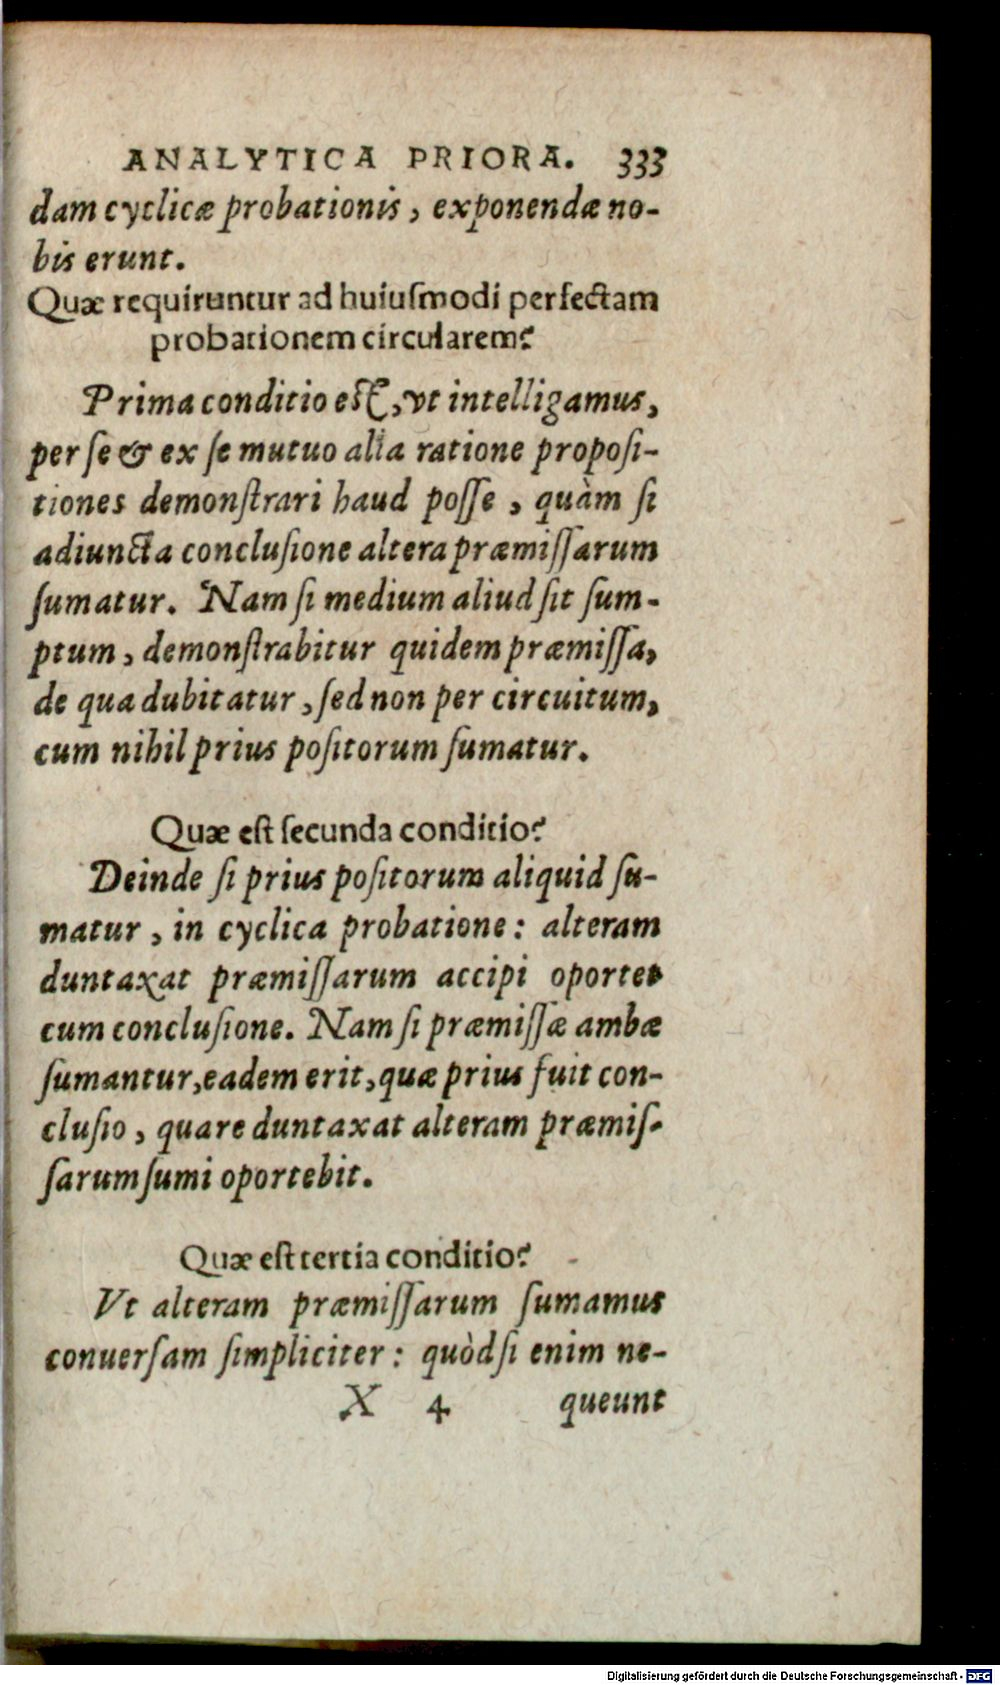 ANALYTICA PRIORA. 333
dam cyclicæ probationis, exponendæ no-
bis erunt.
Quæ requiruntur ad huiuſmodi perfectam
probationem circularem?
Prima conditio eſt, vt intelligamus,
per ſe & ex ſe mutuo alia ratione propoſi-
tiones demonſtrari haud poſſe, quàm ſi
adiuncta concluſione altera præmiſſarum
ſumatur. Nam ſi medium aliud ſit ſum-
ptum, demonſtrabitur quidem præmiſſa,
de qua dubitatur, ſed non per circuitum,
cum nihil prius poſitorum ſumatur.
Quæ eſt ſecunda conditio?
Deinde ſi prius poſitorum aliquid ſu-
matur, in cyclica probatione: alteram
duntaxat præmiſſarum accipi oportet
cum concluſione. Nam ſi præmiſſæ ambæ
ſumantur, eadem erit, quæ prius fuit con-
cluſio, quare duntaxat alteram præmiſ-
ſarum ſumi oportebit.
Quæ eſt tertia conditio?
Vt alteram præmiſſarum ſumamus
conuerſam ſimpliciter: quòd ſi enim ne-
X 4 queunt
Digitalisierung gefördert durch die Deutsche Forschungsgemeinschaft - DFG